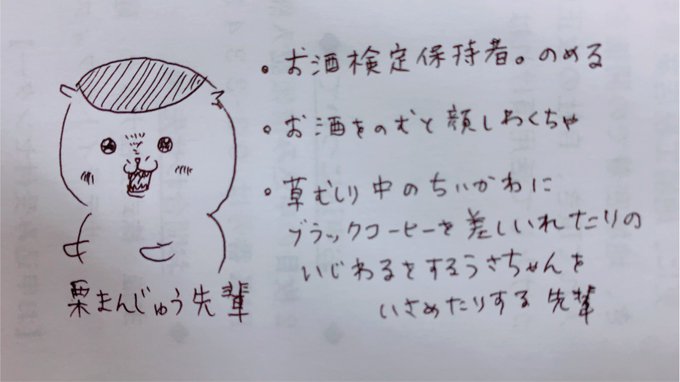 • お酒検定保持者。のめる
• お酒をのむと顔しわくちゃ
• 草むしり中のちいかわに
ブラックコーヒーを差しいれたりの
いじわるをするうさちゃんを
いさめたりする先輩
栗まんじゅう先輩